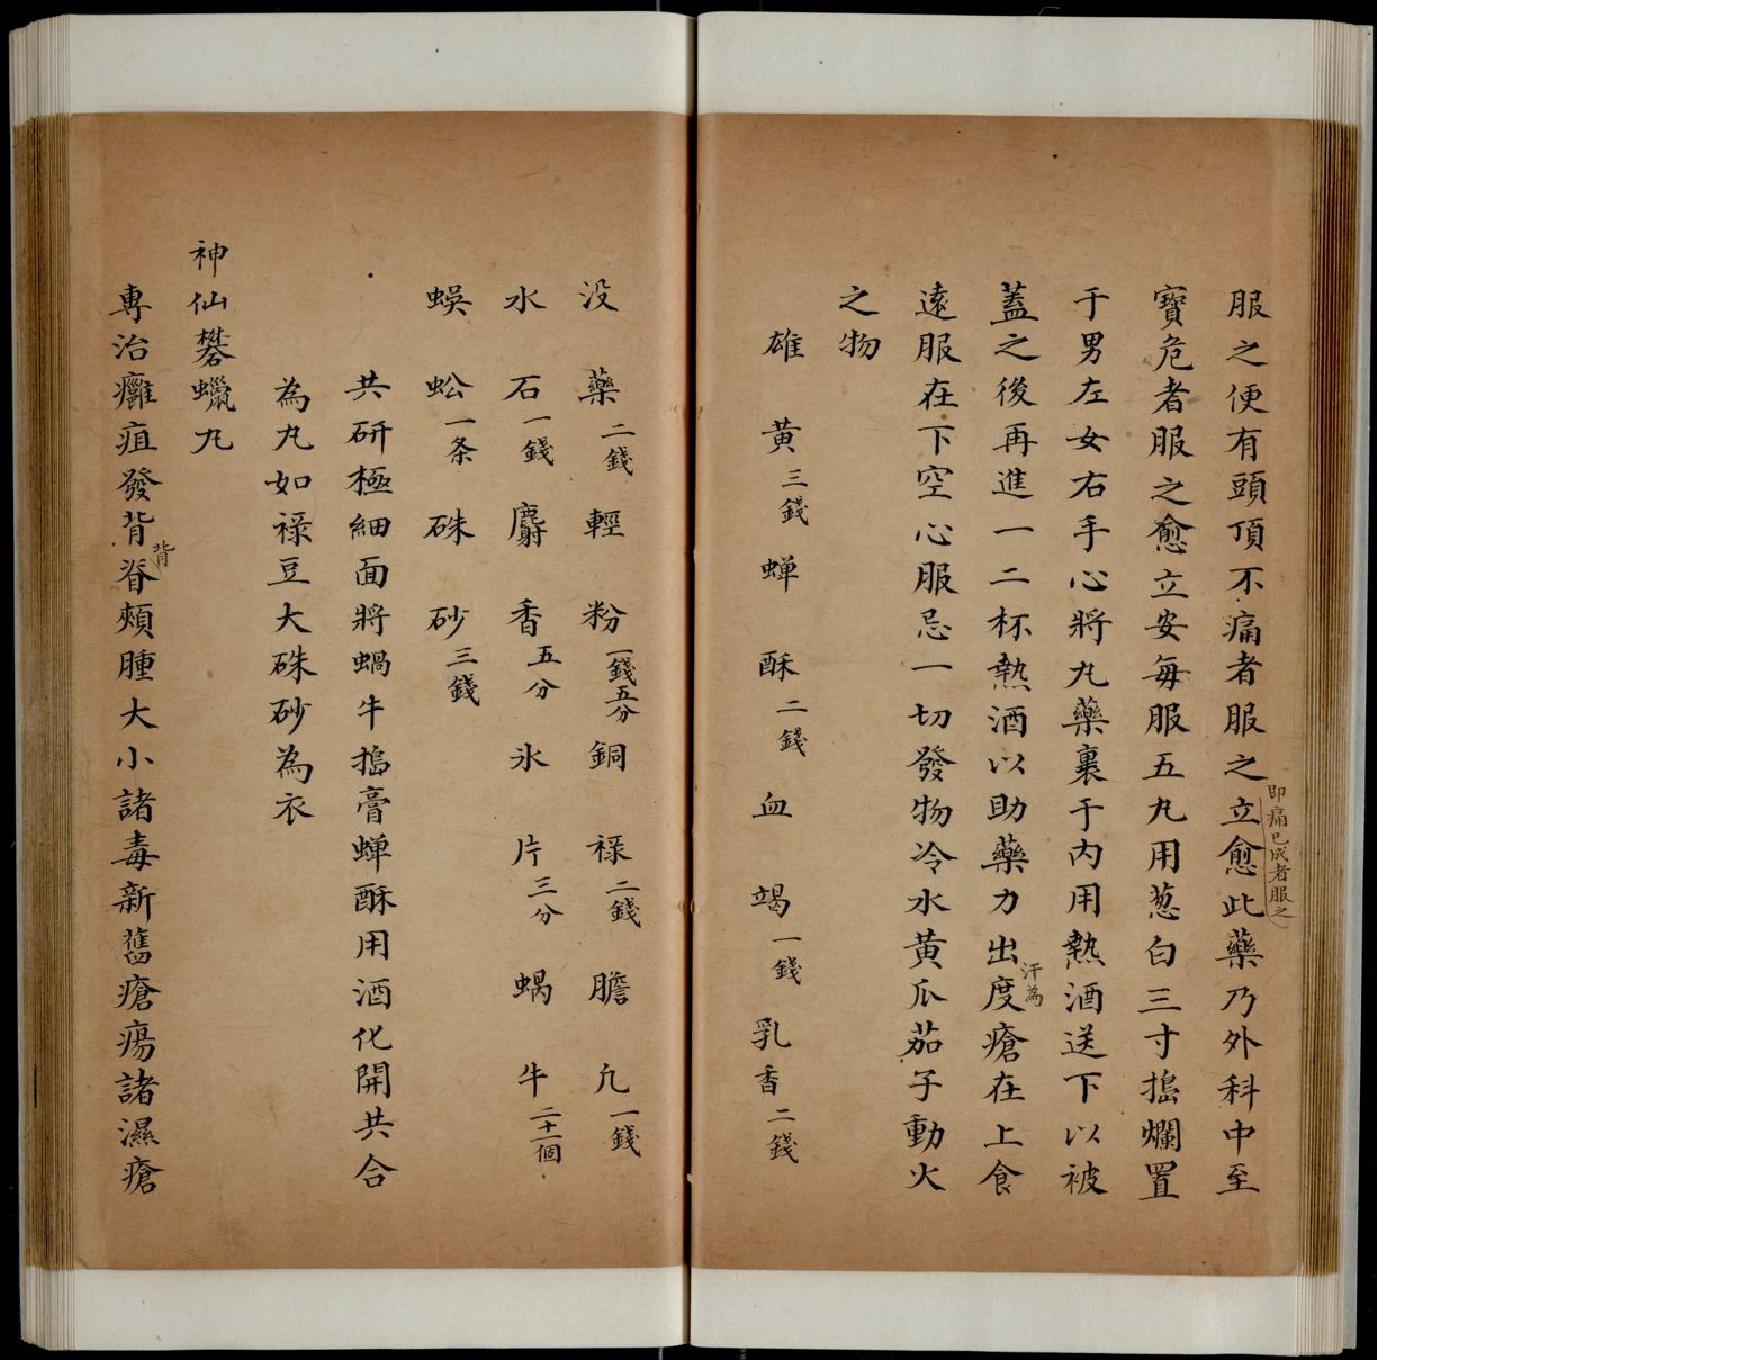 服之便有頭頂不痛者服之立愈此藥乃外科中至
即痛已成者服之
寶危者服之愈立安每服五九用葱白三寸搗爛置
于男左女右手心將九藥裹于内用熱酒送下以被
蓋之後再進一二杯熱酒以助藥力出度瘡在上食
汗為
遠服在下空心服忌一切發物冷水黃瓜茄子動火
之物
雄黃三錢蟬酥二錢血竭一錢乳香二錢
没藥二錢輕粉一錢五分銅禄二錢膽凢一錢
水石一錢麝香五分氷片三分蝸牛二十一個
蜈蚣一条硃砂三錢
共研極細面將蝸牛搗膏蟬酥用酒化開共合
為九如禄豆大硃砂為衣
神仙礬蠟九
專治癰疽發背脊頰腫大小諸毒新舊瘡瘍諸濕瘡
背